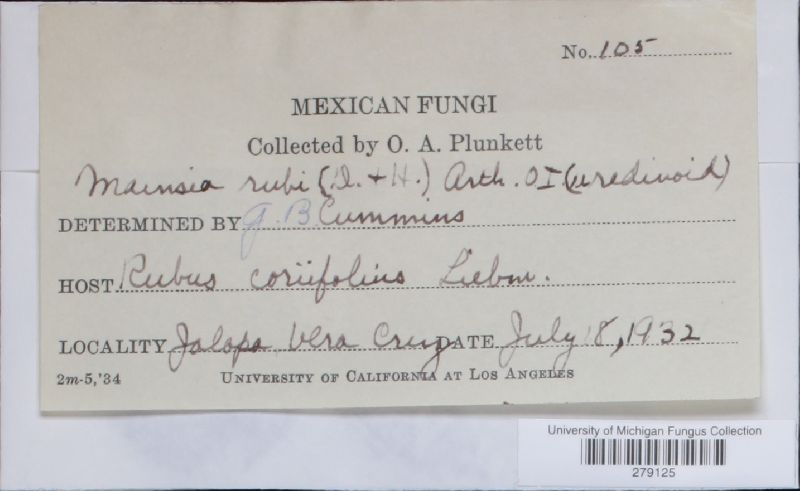 No. 105
MEXICAN FUNGI
Collected by O. A. Plunkett
Mainsia rubi (D. + H.) Arth. O I (uredinoid)
DETERMINED BY G. B. Cummins
HOST Rubus coriifolius Liebm.
LOCALITY Jalapa, Vera Cruz DATE July 18, 1932
2m-5,'34 UNIVERSITY OF CALIFORNIA AT LOS ANGELES
University of Michigan Fungus Collection
279125